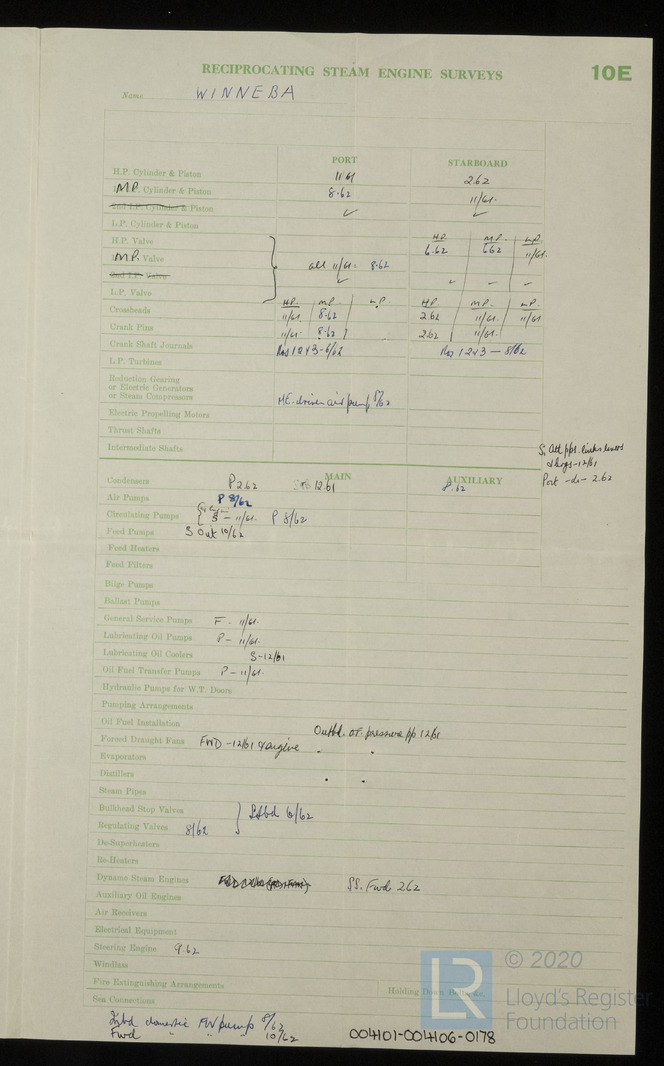 RECIPROCATING STEAM ENGINE SURVEYS 10E
Name WINNEBA
PORT STARBOARD
H.P. Cylinder & Piston 11/61 2.62
M.P. Cylinder & Piston 8.62 11/61.
2nd I.P. Cylinder & Piston ✓ ✓
L.P. Cylinder & Piston
H.P. M.P.
H.P. Valve 6.62 6.62 11/61.
M.P. Valve all 11/61. 8.62
2nd I.P. Valve ✓ ✓ – –
L.P. Valve
H.P. M.P. H.P. M.P.
Crossheads 11/61. 8.62 2.62 11/61. 11/61
Crank Pins 11/61. 8.62 2.62 11/61.
Crank Shaft Journals Nos 1 2 & 3 - 6/62 Nos 1 2 & 3 — 8/62
L.P. Turbines
Reduction Gearing
or Electric Generators
or Steam Compressors M.E. driven air pump 8/62
Electric Propelling Motors
Thrust Shafts
Intermediate Shafts
12/61
Port -do- 2.62
MAIN AUXILIARY
Condensers P 2.62 12.61 8.62
Air Pumps P 8/62
Circulating Pumps S - 11/61. P 8/62
Feed Pumps S Out 10/62
Feed Heaters
Feed Filters
Bilge Pumps
Ballast Pumps
General Service Pumps F. 11/61.
Lubricating Oil Pumps P - 11/61.
Lubricating Oil Coolers S - 12/61
Oil Fuel Transfer Pumps P - 11/61.
Hydraulic Pumps for W.T. Doors
Pumping Arrangements
Oil Fuel Installation Outbd. o.f. pressure pp 12/61
Forced Draught Fans FWD - 12/61 & engine
Evaporators
Distillers
Steam Pipes
Bulkhead Stop Valves } Stbd 6/62
Regulating Valves 8/62
De-Superheaters
Re-Heaters
Dynamo Steam Engines SS. Fwd 2.62
Auxiliary Oil Engines
Air Receivers
Electrical Equipment
Steering Engine 9.62
Windlass
Fire Extinguishing Arrangements Holding Down
Sea Connections
Inbd domestic FW pump 8/62
Fwd " " 10/62
004101-004106-0178
LR
© 2020
Lloyd's Register
Foundation